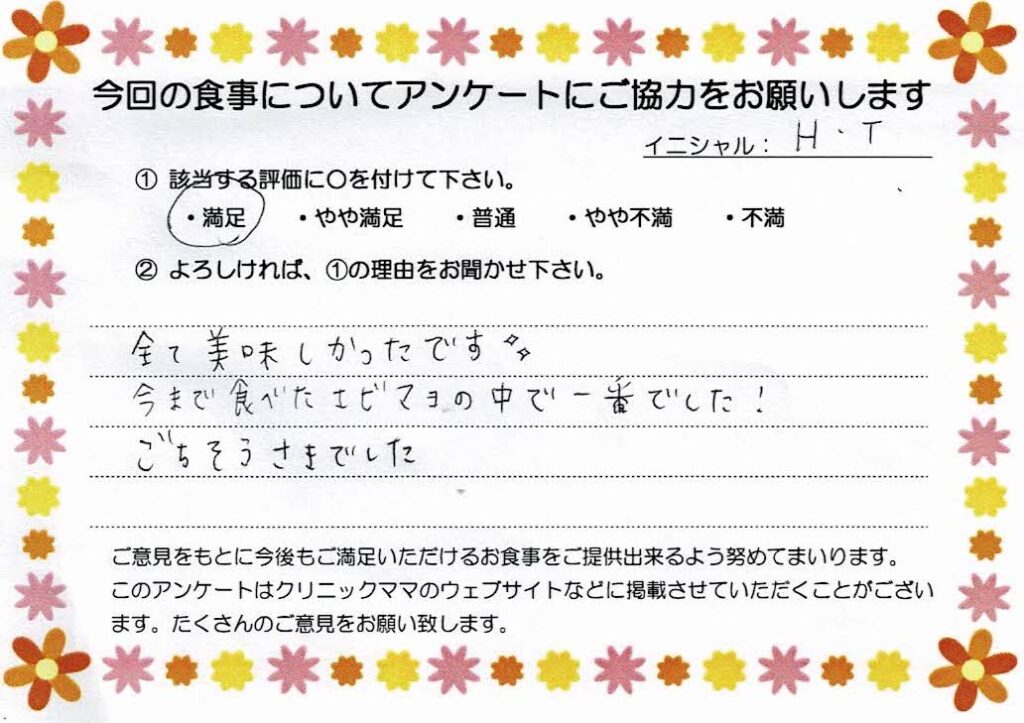 今回の食事についてアンケートにご協力をお願いします
イニシャル： H・T
① 該当する評価に〇を付けて下さい。
・満足 ・やや満足 ・普通 ・やや不満 ・不満
② よろしければ、①の理由をお聞かせ下さい。
全て美味しかったです
今まで食べたエビマヨの中で一番でした！
ごちそうさまでした
ご意見をもとに今後もご満足いただけるお食事をご提供出来るよう努めてまいります。
このアンケートはクリニックママのウェブサイトなどに掲載させていただくことがござい
ます。たくさんのご意見をお願い致します。